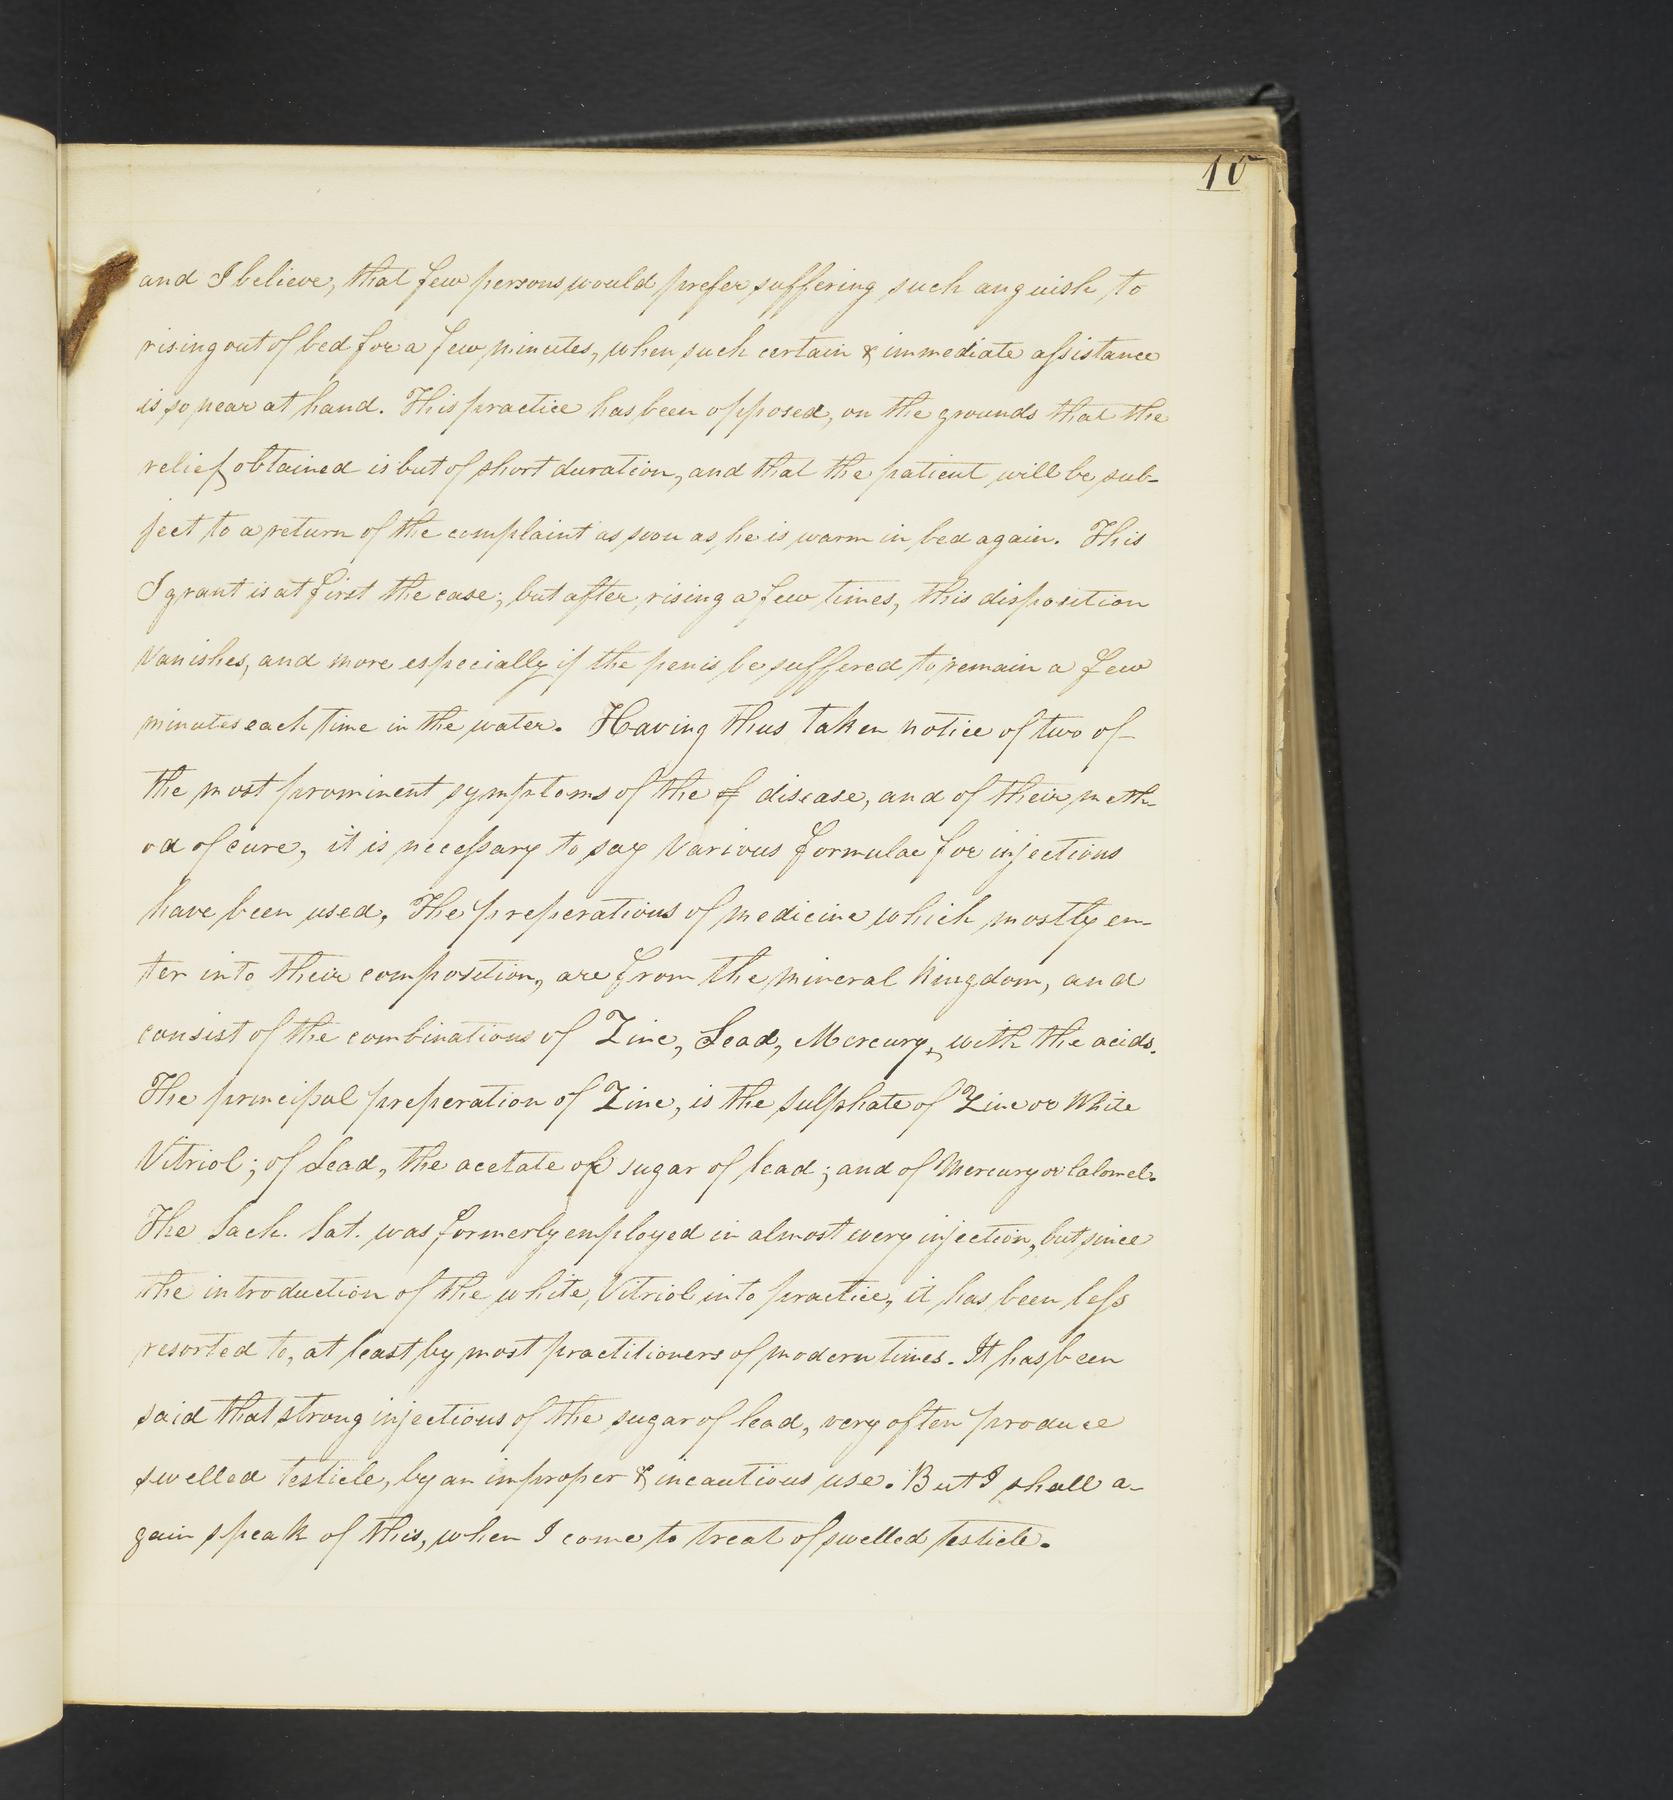 10
and I believe, that few persons would prefer suffering such anguish to
rising out of bed for a few minutes, when such certain & immediate assistance
is so near at hand. This practice has been opposed, on the grounds that the
relief obtained is but of short duration, and that the patient will be sub-
ject to a return of the complaint as soon as he is warm in bed again. This
I grant is at first the case; but after rising a few times, this disposition
vanishes, and more especially if the penis be suffered to remain a few
minutes each time in the water. Having thus taken notice of two of
the most prominent symptoms of the of disease, and of their meth-
od of cure, it is necessary to say various formulae for injections
have been used, The preperations of medicine which mostly en-
ter into their composition, are from the mineral kingdom, and
consist of the combinations of Zinc, Lead, Mercury, with the acids.
The principal preperation of Zinc, is the Sulphate of Zinc or White
Vitriol; of Lead, the acetate or sugar of lead; and of Mercury or Calomel.
The Sach. Sat. was formerly employed in almost every injection, but since
the introduction of the white Vitriol into practice, it has been less
resorted to, at least by most practitioners of modern times. It has been
said that strong injections of the sugar of lead, very often produce
swelled testicle, by an improper & incautious use. But I shall a-
gain speak of this, when I come to treat of swelled testicle.